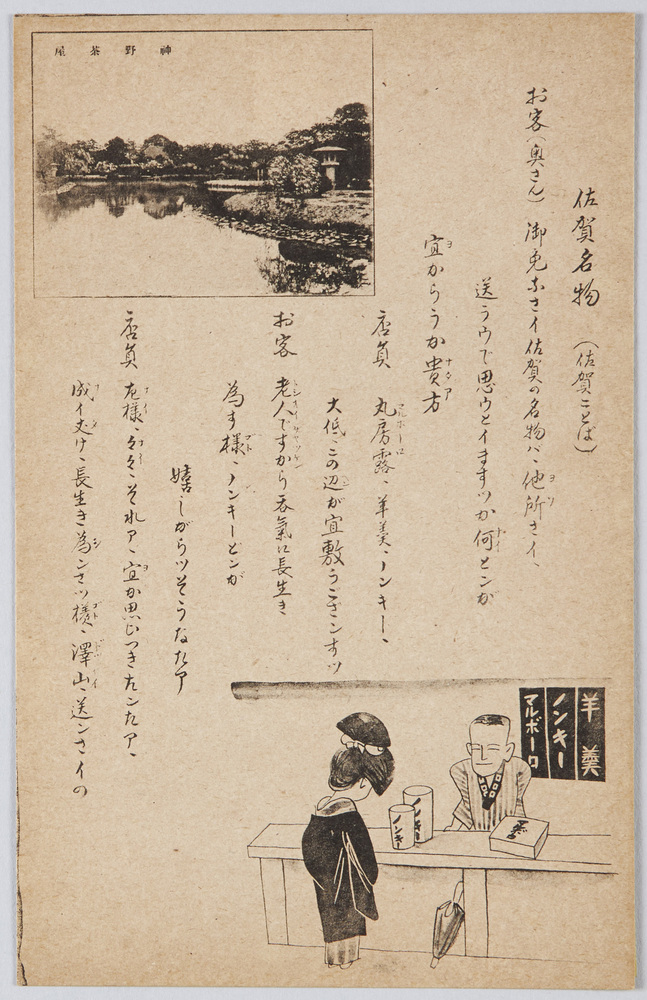 佐賀名物 (佐賀ことば)
お客(奥さん) 御免なさイ佐賀の名物バ、他所さイ、
送ラウで思ウとイますツか何とンが
宜からうか貴方
店員 丸房露、羊羹、ノンキー、
大低、この辺が宜敷うございンすツ
お客 老人ですから呑氣に長生き
為す様、ノンキーどンが
嬉しがらツそうなたア
店員 左様、々々、それア、宜か思ひつきたンたア、
成イ丈け、長生き為ンさツ様、澤山、送ンさイの
神野茶屋
羊羹
ノンキー
マルボーロ
ノンキー
ノンキー